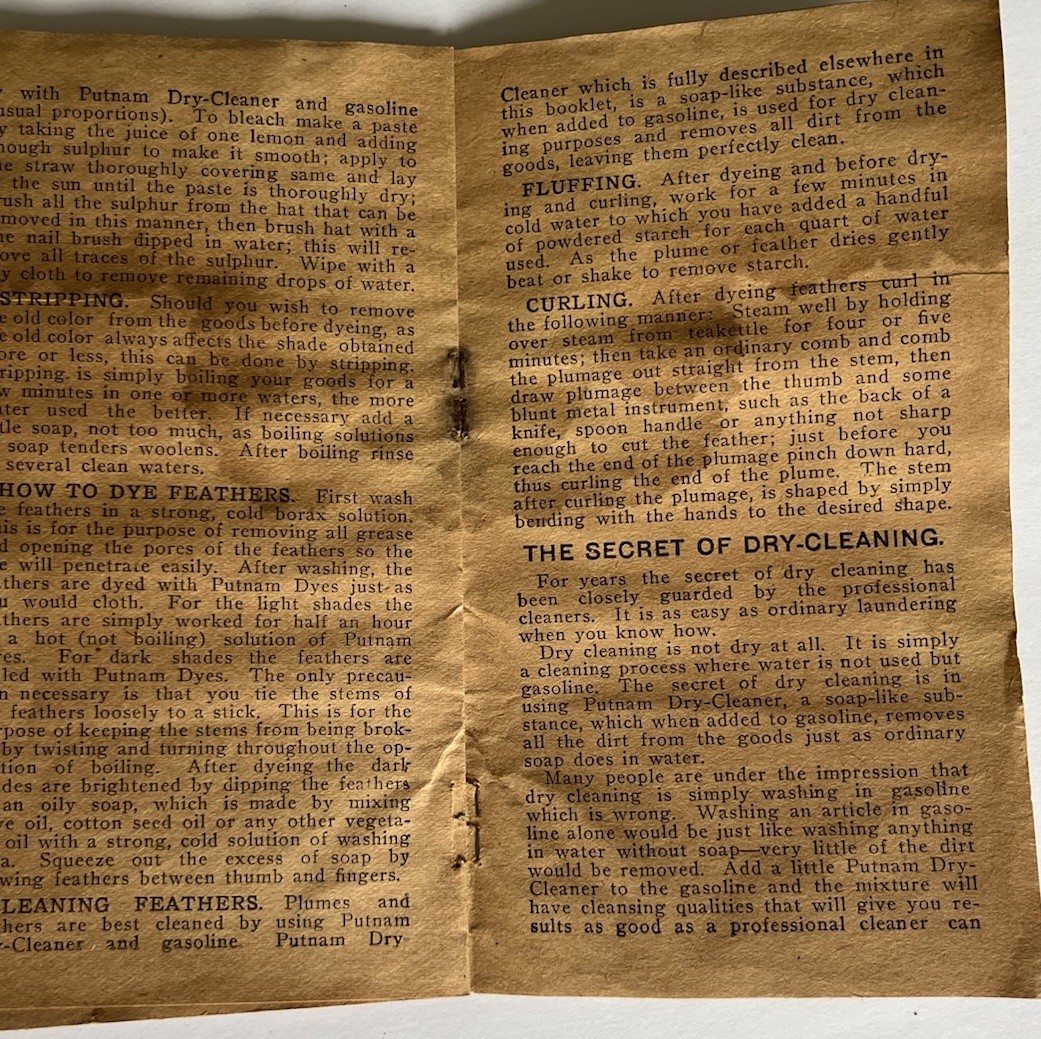 with Putnam Dry-Cleaner and gasoline
usual proportions). To bleach make a paste
y taking the juice of one lemon and adding
nough sulphur to make it smooth; apply to
he straw thoroughly covering same and lay
the sun until the paste is thoroughly dry;
rush all the sulphur from the hat that can be
moved in this manner, then brush hat with a
ne nail brush dipped in water; this will re-
ove all traces of the sulphur. Wipe with a
y cloth to remove remaining drops of water.
STRIPPING. Should you wish to remove
e old color from the goods before dyeing, as
e old color always affects the shade obtained
ore or less, this can be done by stripping.
ripping is simply boiling your goods for a
w minutes in one or more waters, the more
ater used the better. If necessary add a
tle soap, not too much, as boiling solutions
soap tenders woolens. After boiling rinse
several clean waters.
HOW TO DYE FEATHERS. First wash
e feathers in a strong, cold borax solution.
his is for the purpose of removing all grease
d opening the pores of the feathers so the
e will penetrate easily. After washing, the
athers are dyed with Putnam Dyes just as
u would cloth. For the light shades the
athers are simply worked for half an hour
a hot (not boiling) solution of Putnam
es. For dark shades the feathers are
led with Putnam Dyes. The only precau-
n necessary is that you tie the stems of
feathers loosely to a stick. This is for the
rpose of keeping the stems from being brok-
by twisting and turning throughout the op-
tion of boiling. After dyeing the dark
des are brightened by dipping the feathers
an oily soap, which is made by mixing
ve oil, cotton seed oil or any other vegeta-
oil with a strong, cold solution of washing
a. Squeeze out the excess of soap by
wing feathers between thumb and fingers.
LEANING FEATHERS. Plumes and
thers are best cleaned by using Putnam
y-Cleaner and gasoline. Putnam Dry
Cleaner which is fully described elsewhere in
this booklet, is a soap-like substance, which
when added to gasoline, is used for dry clean-
ing purposes and removes all dirt from the
goods, leaving them perfectly clean.
FLUFFING. After dyeing and before dry-
ing and curling, work for a few minutes in
cold water to which you have added a handful
of powdered starch for each quart of water
used. As the plume or feather dries gently
beat or shake to remove starch.
CURLING. After dyeing feathers curl in
the following manner: Steam well by holding
over steam from teakettle for four or five
minutes; then take an ordinary comb and comb
the plumage out straight from the stem, then
draw plumage between the thumb and some
blunt metal instrument, such as the back of a
knife, spoon handle or anything not sharp
enough to cut the feather; just before you
reach the end of the plumage pinch down hard,
thus curling the end of the plume. The stem
after curling the plumage, is shaped by simply
bending with the hands to the desired shape.
THE SECRET OF DRY-CLEANING.
For years the secret of dry cleaning has
been closely guarded by the professional
cleaners. It is as easy as ordinary laundering
when you know how.
Dry cleaning is not dry at all. It is simply
a cleaning process where water is not used but
gasoline. The secret of dry cleaning is in
using Putnam Dry-Cleaner, a soap-like sub-
stance, which when added to gasoline, removes
all the dirt from the goods just as ordinary
soap does in water.
Many people are under the impression that
dry cleaning is simply washing in gasoline
which is wrong. Washing an article in gaso-
line alone would be just like washing anything
in water without soap—very little of the dirt
would be removed. Add a little Putnam Dry-
Cleaner to the gasoline and the mixture will
have cleansing qualities that will give you re-
sults as good as a professional cleaner can